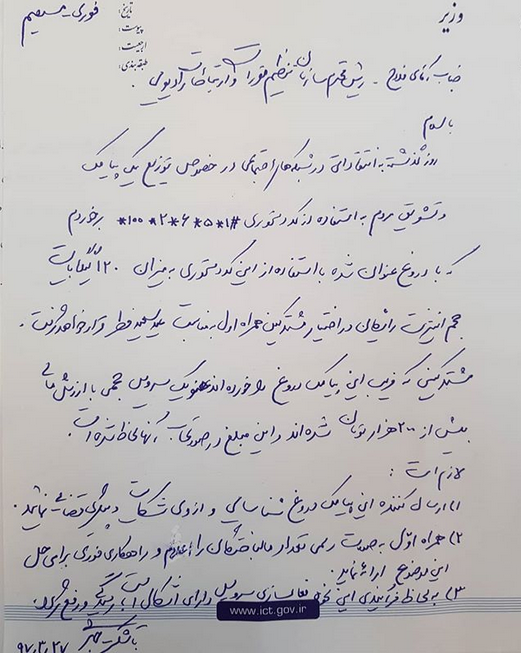 وزیر
تاریخ:
فوری - مستقیم
پیوست:
اهمیت:
طبقه‌بندی:
جناب آقای فلاح - رئیس محترم سازمان تنظیم مقررات و ارتباطات رادیویی
با سلام
روز گذشته به انتقاداتی در شبکه‌های اجتماعی در خصوص توزیع یک پیامک
و تشویق مردم به استفاده از کد دستوری #۱*۵*۶*۲*۱۰۰* برخوردم
که با دروغ عنوان شده با استفاده از این کد دستوری به میزان ۱۲۰ گیگابایت
حجم اینترنت رایگان در اختیار مشترکین همراه اول به مناسبت عید سعید فطر قرار خواهد گرفت.
مشترکینی که فریب این پیامک دروغ را خورده‌اند یک سرویس حجمی با ارزش مالی
بیش از ۲۰۰ هزار تومان شده‌اند و این مبلغ در صورتحساب آنها لحاظ شده است.
لازم است:
۱) ارسال کننده این پیامک دروغ شناسایی و از وی شکایت و پیگیری قضایی نمائید.
۲) همراه اول به صورت رسمی تعداد مالباختگان را اعلام و راهکاری فوری برای حل
این موضوع ارائه نماید.
۳) به لحاظ فرآیندی این نحوه فعالسازی سرویس دارای اشکال است، رسیدگی و رفع شود.
www.ict.gov.ir
با تشکر
۹۷،۳،۲۷